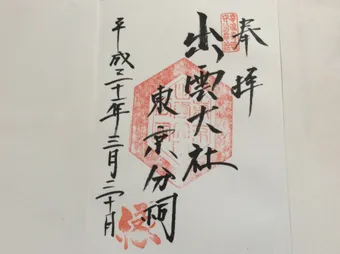 奉拝
出雲大社
東京分祠
平成二十一年三月二十日
縁